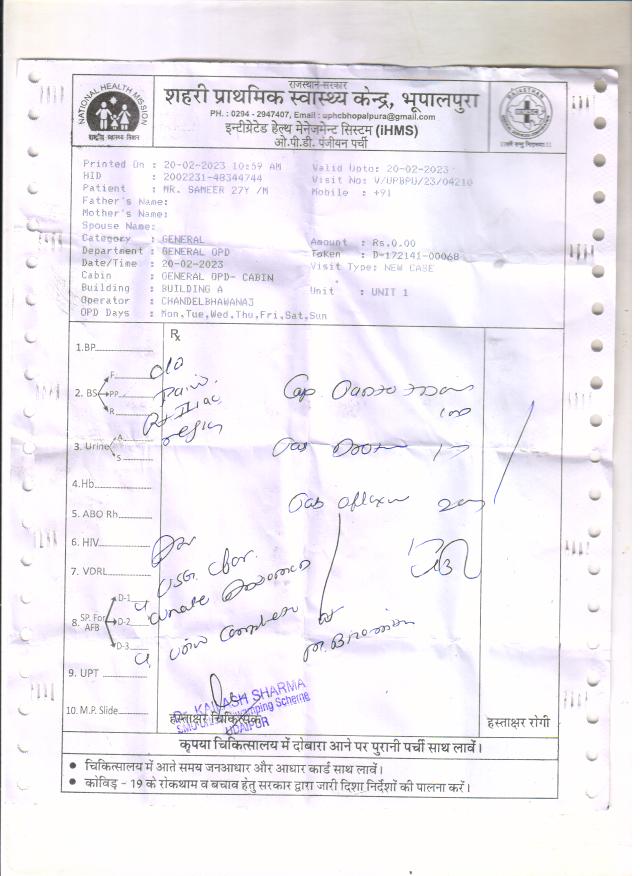 राजस्थान सरकार
शहरी प्राथमिक स्वास्थ्य केन्द्र, भूपालपुरा
PH. : 0294 - 2947407, Email : uphcbhopalpura@gmail.com
इन्टीग्रेटेड हेल्थ मेनेजमेन्ट सिस्टम (iHMS)
ओ.पी.डी. पंजीयन पर्ची
NATIONAL HEALTH MISSION
राष्ट्रीय स्वास्थ्य मिशन
Printed On : 20-02-2023 10:59 AM Valid Upto: 20-02-2023
HID : 2002231-48344744 Visit No: V/UPBPU/23/04210
Patient : MR. SAMEER 27Y /M Mobile : +91
Father's Name:
Mother's Name:
Spouse Name:
Category : GENERAL Amount : Rs.0.00
Department : GENERAL OPD Token : D-172141-00068
Date/Time : 20-02-2023 Visit Type: NEW CASE
Cabin : GENERAL OPD- CABIN
Building : BUILDING A Unit : UNIT 1
Operator : CHANDELBHAWANAJ
OPD Days : Mon,Tue,Wed,Thu,Fri,Sat,Sun
Rx
1.BP
2. BS F. PP R
3. Urine A S
4.Hb
5. ABO Rh
6. HIV
7. VDRL
8. SP. For AFB D-1 D-2 D-3
9. UPT
10. M.P. Slide
c/o
Pain
Rt Iliac
region
Cap
Tab
Tab Oflaxin 200
USG
Urine Complete
Dr. KAILASH SHARMA
UDAIPUR
हस्ताक्षर चिकित्सक हस्ताक्षर रोगी
कृपया चिकित्सालय में दोबारा आने पर पुरानी पर्ची साथ लावें।
● चिकित्सालय में आते समय जनआधार और आधार कार्ड साथ लावें।
● कोविड़ - 19 के रोकथाम व बचाव हेतु सरकार द्वारा जारी दिशा निर्देशों की पालना करें।